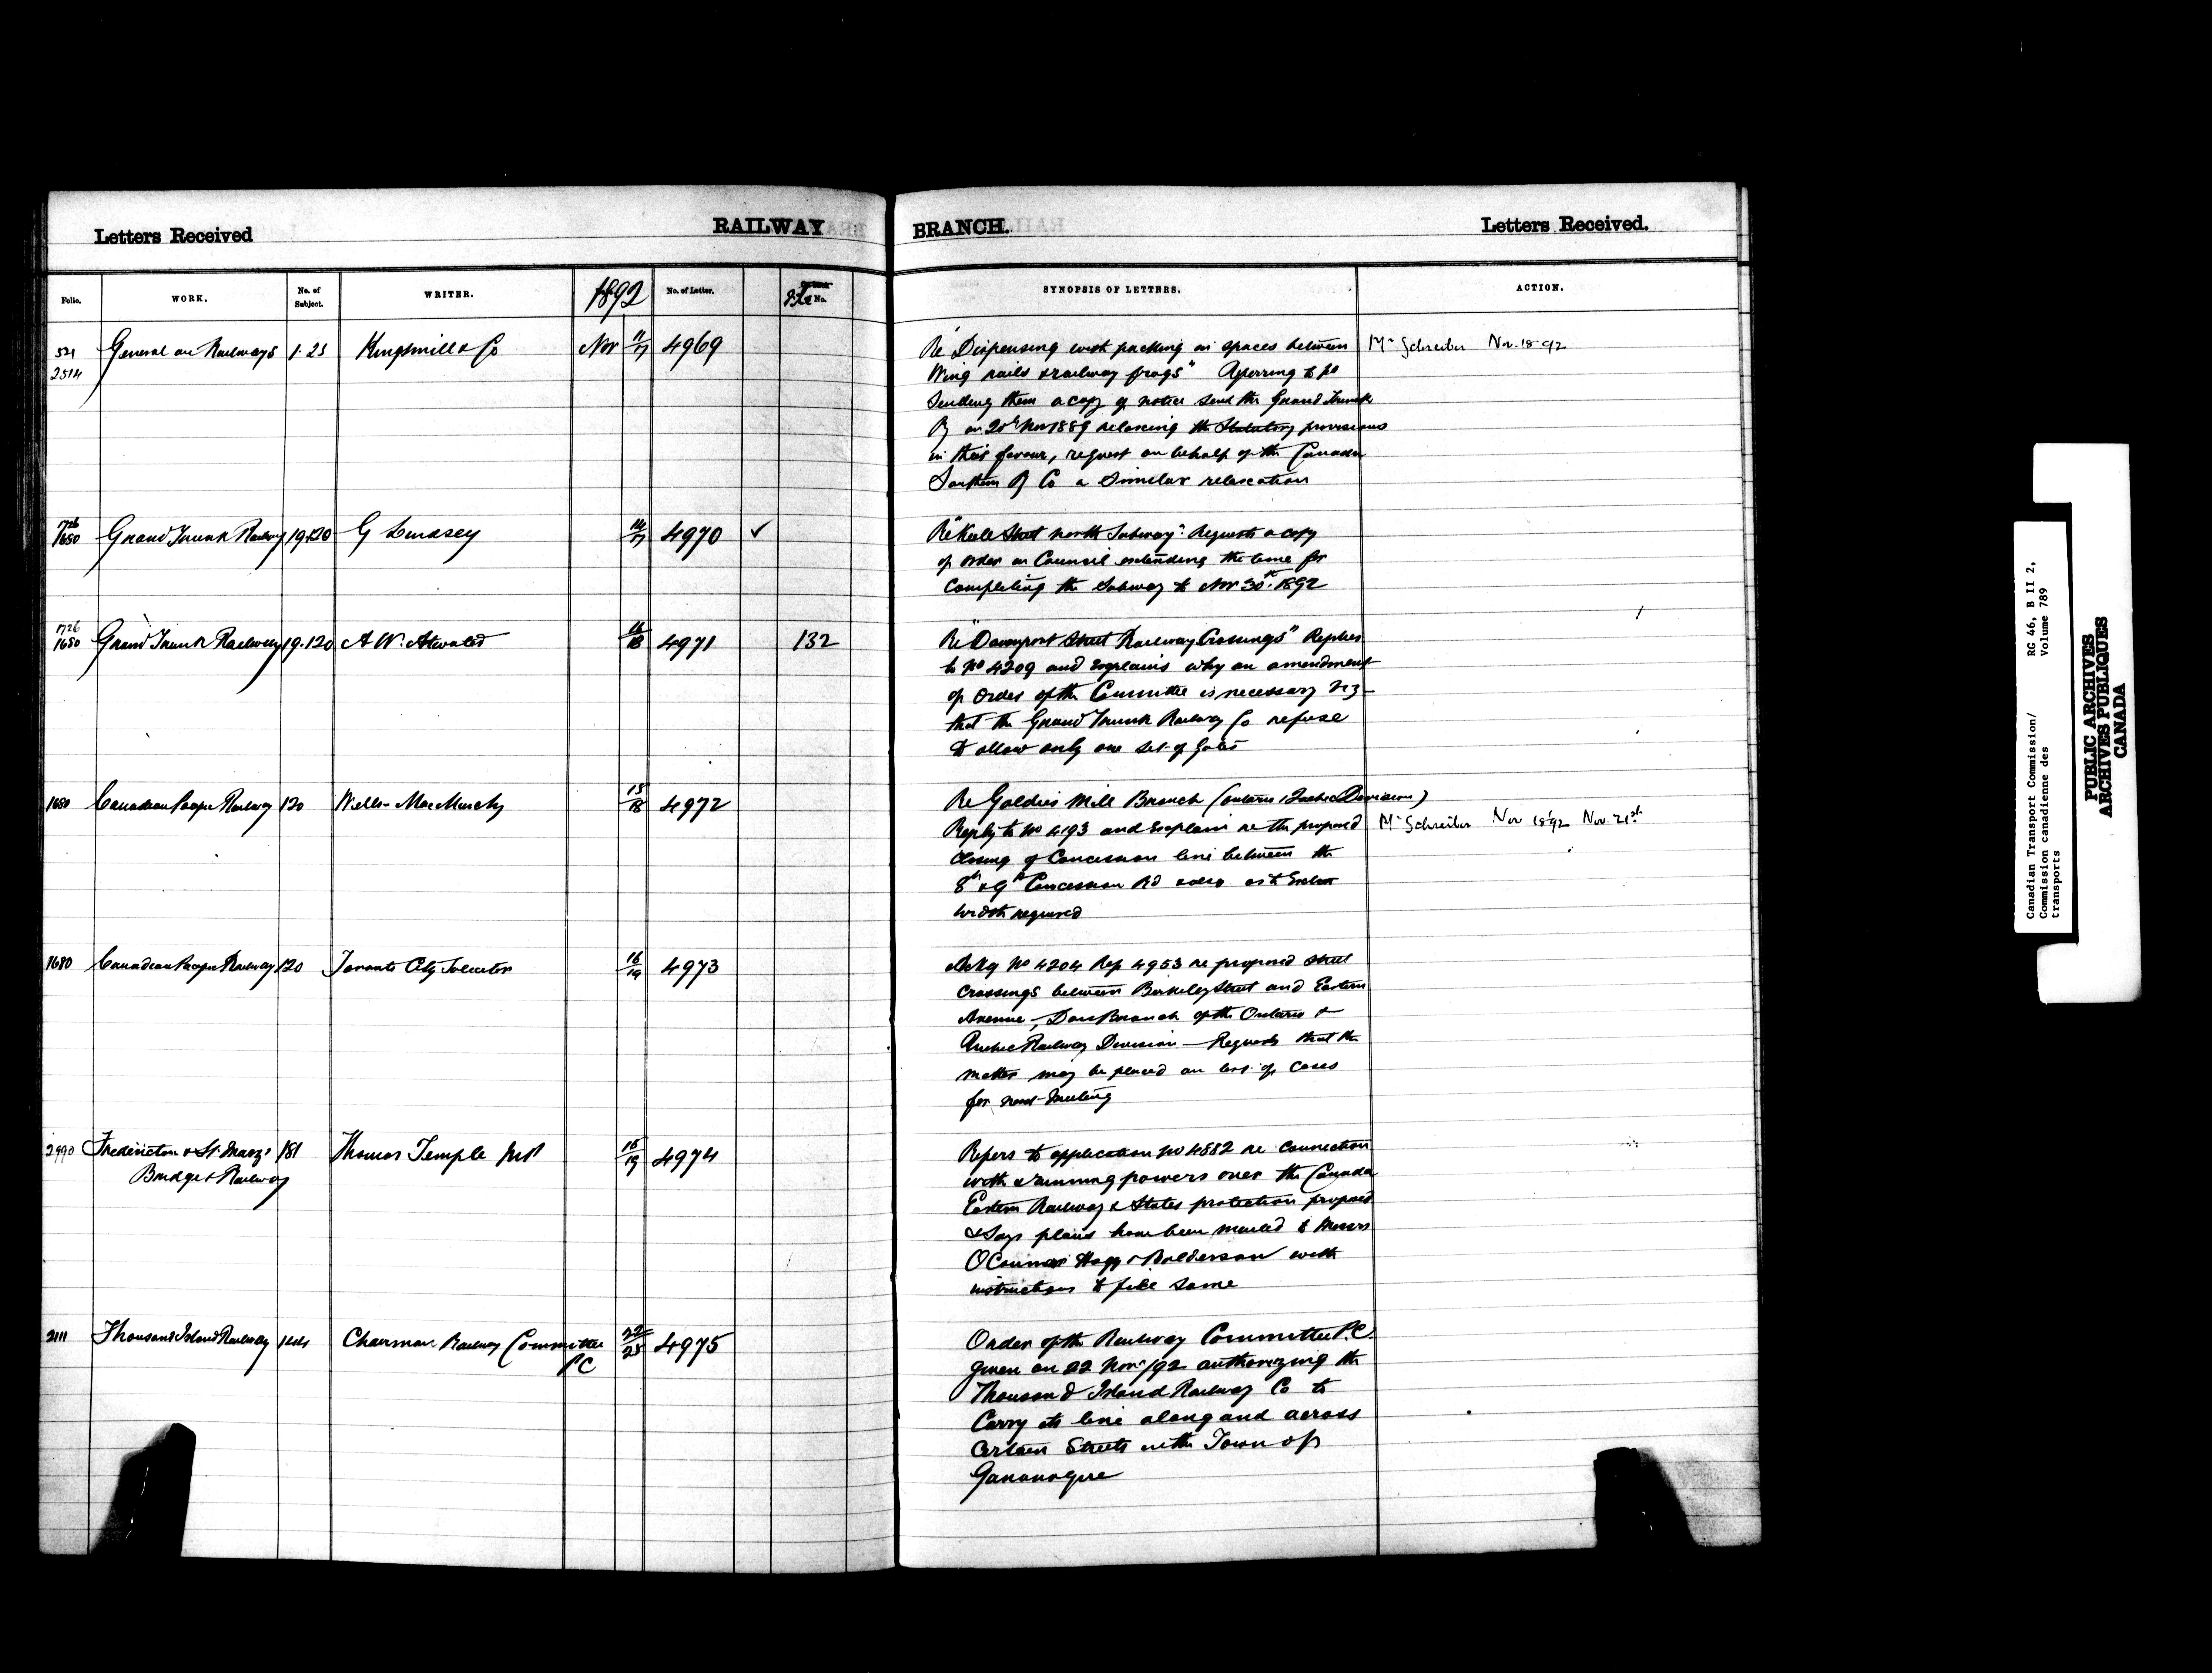 Letters Received
RAILWAY
BRANCH.
Letters Received.
Folio.
WORK.
No. of Subject.
WRITER.
1892
No. of Letter.
File No.
SYNOPSIS OF LETTERS.
ACTION.
521
2514
General on Railways 1.23 Kingsmill & Co Nov 11/17 4969
Re "Dispensing with packing in spaces between
Wing rails & railway frogs" Referring to
sending them a copy of notice send the Grand Trunk
Ry on 20th Nov 1889 relaxing the Statutory provisions
in their favour, request on behalf of the Canada
Southern Ry Co a similar relaxation
Mr Schreiber Nov. 18-92
1726
1680
Grand Trunk Railway 19.120 G Lindsey 14/17 4970 ✓
Re "Keele Street North Subway". Requests a copy
of Order in Council extending the time for
completing the Subway to Nov 30th 1892
1726
1680
Grand Trunk Railway 19.120 A W. Atwater 4971 132
Re "Davenport Street Railway Crossings" Replies
to No 4209 and explains why an amendment
of Order of the Committee is necessary viz
that the Grand Trunk Railway Co refuse
to allow only one set of Gates
1680 Canadian Pacific Railway 120 Wells & MacMurchy 15/18 4972
Re Goldies Mill Branch (Ontario & Quebec Division)
Reply to No 4193 and explain re the proposed
closing of Concession line between the
8th & 9th Concession Rd & also as to
width required
Mr Schreiber Nov 18-92 Nov 21st
1680 Canadian Pacific Railway 120 Toronto City Solicitor 16/19 4973
Ackg No 4204 Rep 4953 re proposed street
crossings between Berkeley Street and Eastern
Avenue, Don Branch of the Ontario &
Quebec Railway Division — Requests that the
matter may be placed on list of cases
for next meeting
2990 Fredericton & St. Marys 181 Thomas Temple MP 16/19 4974
Bridge & Railway
Refers to application No 4882 re connection
with & running powers over the Canada
Eastern Railway & States protection proposed
& Says plans have been mailed to Messrs
OConnor Hogg & Balderson with
instructions to file same
2111 Thousand Island Railway 144 Chairman Railway Committee 22/25 4975
PC
Order of the Railway Committee P.C.
given on 22 Nov /92 authorizing the
Thousand Island Railway Co to
Carry its line along and across
certain Streets in the Town of
Gananoque
Canadian Transport Commission/
Commission canadienne des
transports
RG 46, B II 2,
Volume 789
PUBLIC ARCHIVES
ARCHIVES PUBLIQUES
CANADA